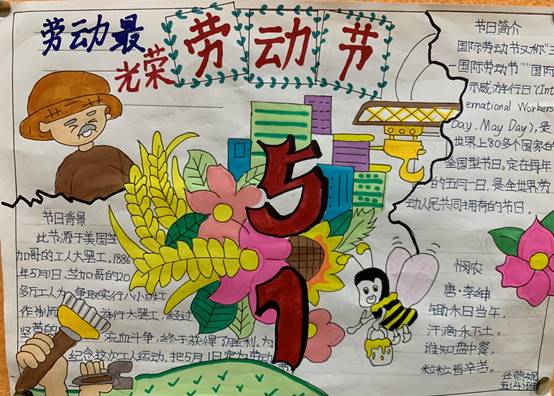 劳动最
光荣
劳动节
5
1
节日简介
国际劳动节又称"
国际劳动节""国际
示威游行日"(Int
ernational Workers
Day, May Day),是
世界上80多个国家的
全国型节日。定在每年
的五月一日,是全世界劳
动人民共同拥有的节日。
节日背景
此节源于美国芝
加哥的工人大罢工,1886
年5月1日,芝加哥的20
多万工人为争取实行八小时工
作制 游行大罢工,经过
坚苦的 流血斗争,终于获得了胜利。为
纪念这次工人运动,把5月1日定为劳动
悯农
唐·李绅
锄禾日当午,
汗滴禾下土。
谁知盘中餐,
粒粒皆辛苦。